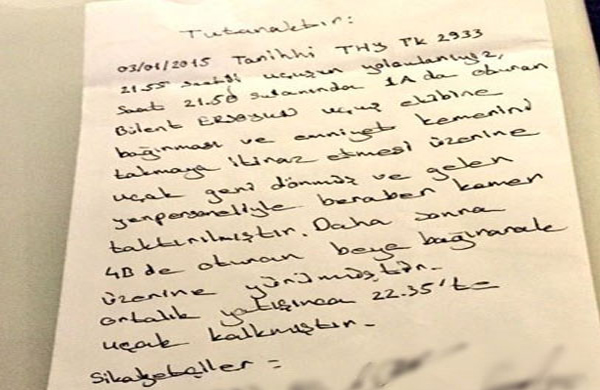 Tutanaktır:
03/01/2015 Tarihli THY TK 2933
21.55 saatli uçuşun yolcularıyız,
Saat 21.50 sularında 1A da oturan
Bülent ERSOYUN uçuş ekibine
bağırması ve emniyet kemerini
takmaya itiraz etmesi üzerine
uçak geri dönmüş ve gelen
yerpersoneliyle beraber kemer
taktırılmıştır. Daha sonra
4B de oturan beye bağırarak
üzerine yürümüştür.
Ortalık yatışınca 22.35'te
uçak kalkmıştır.
Şikayetçiler =